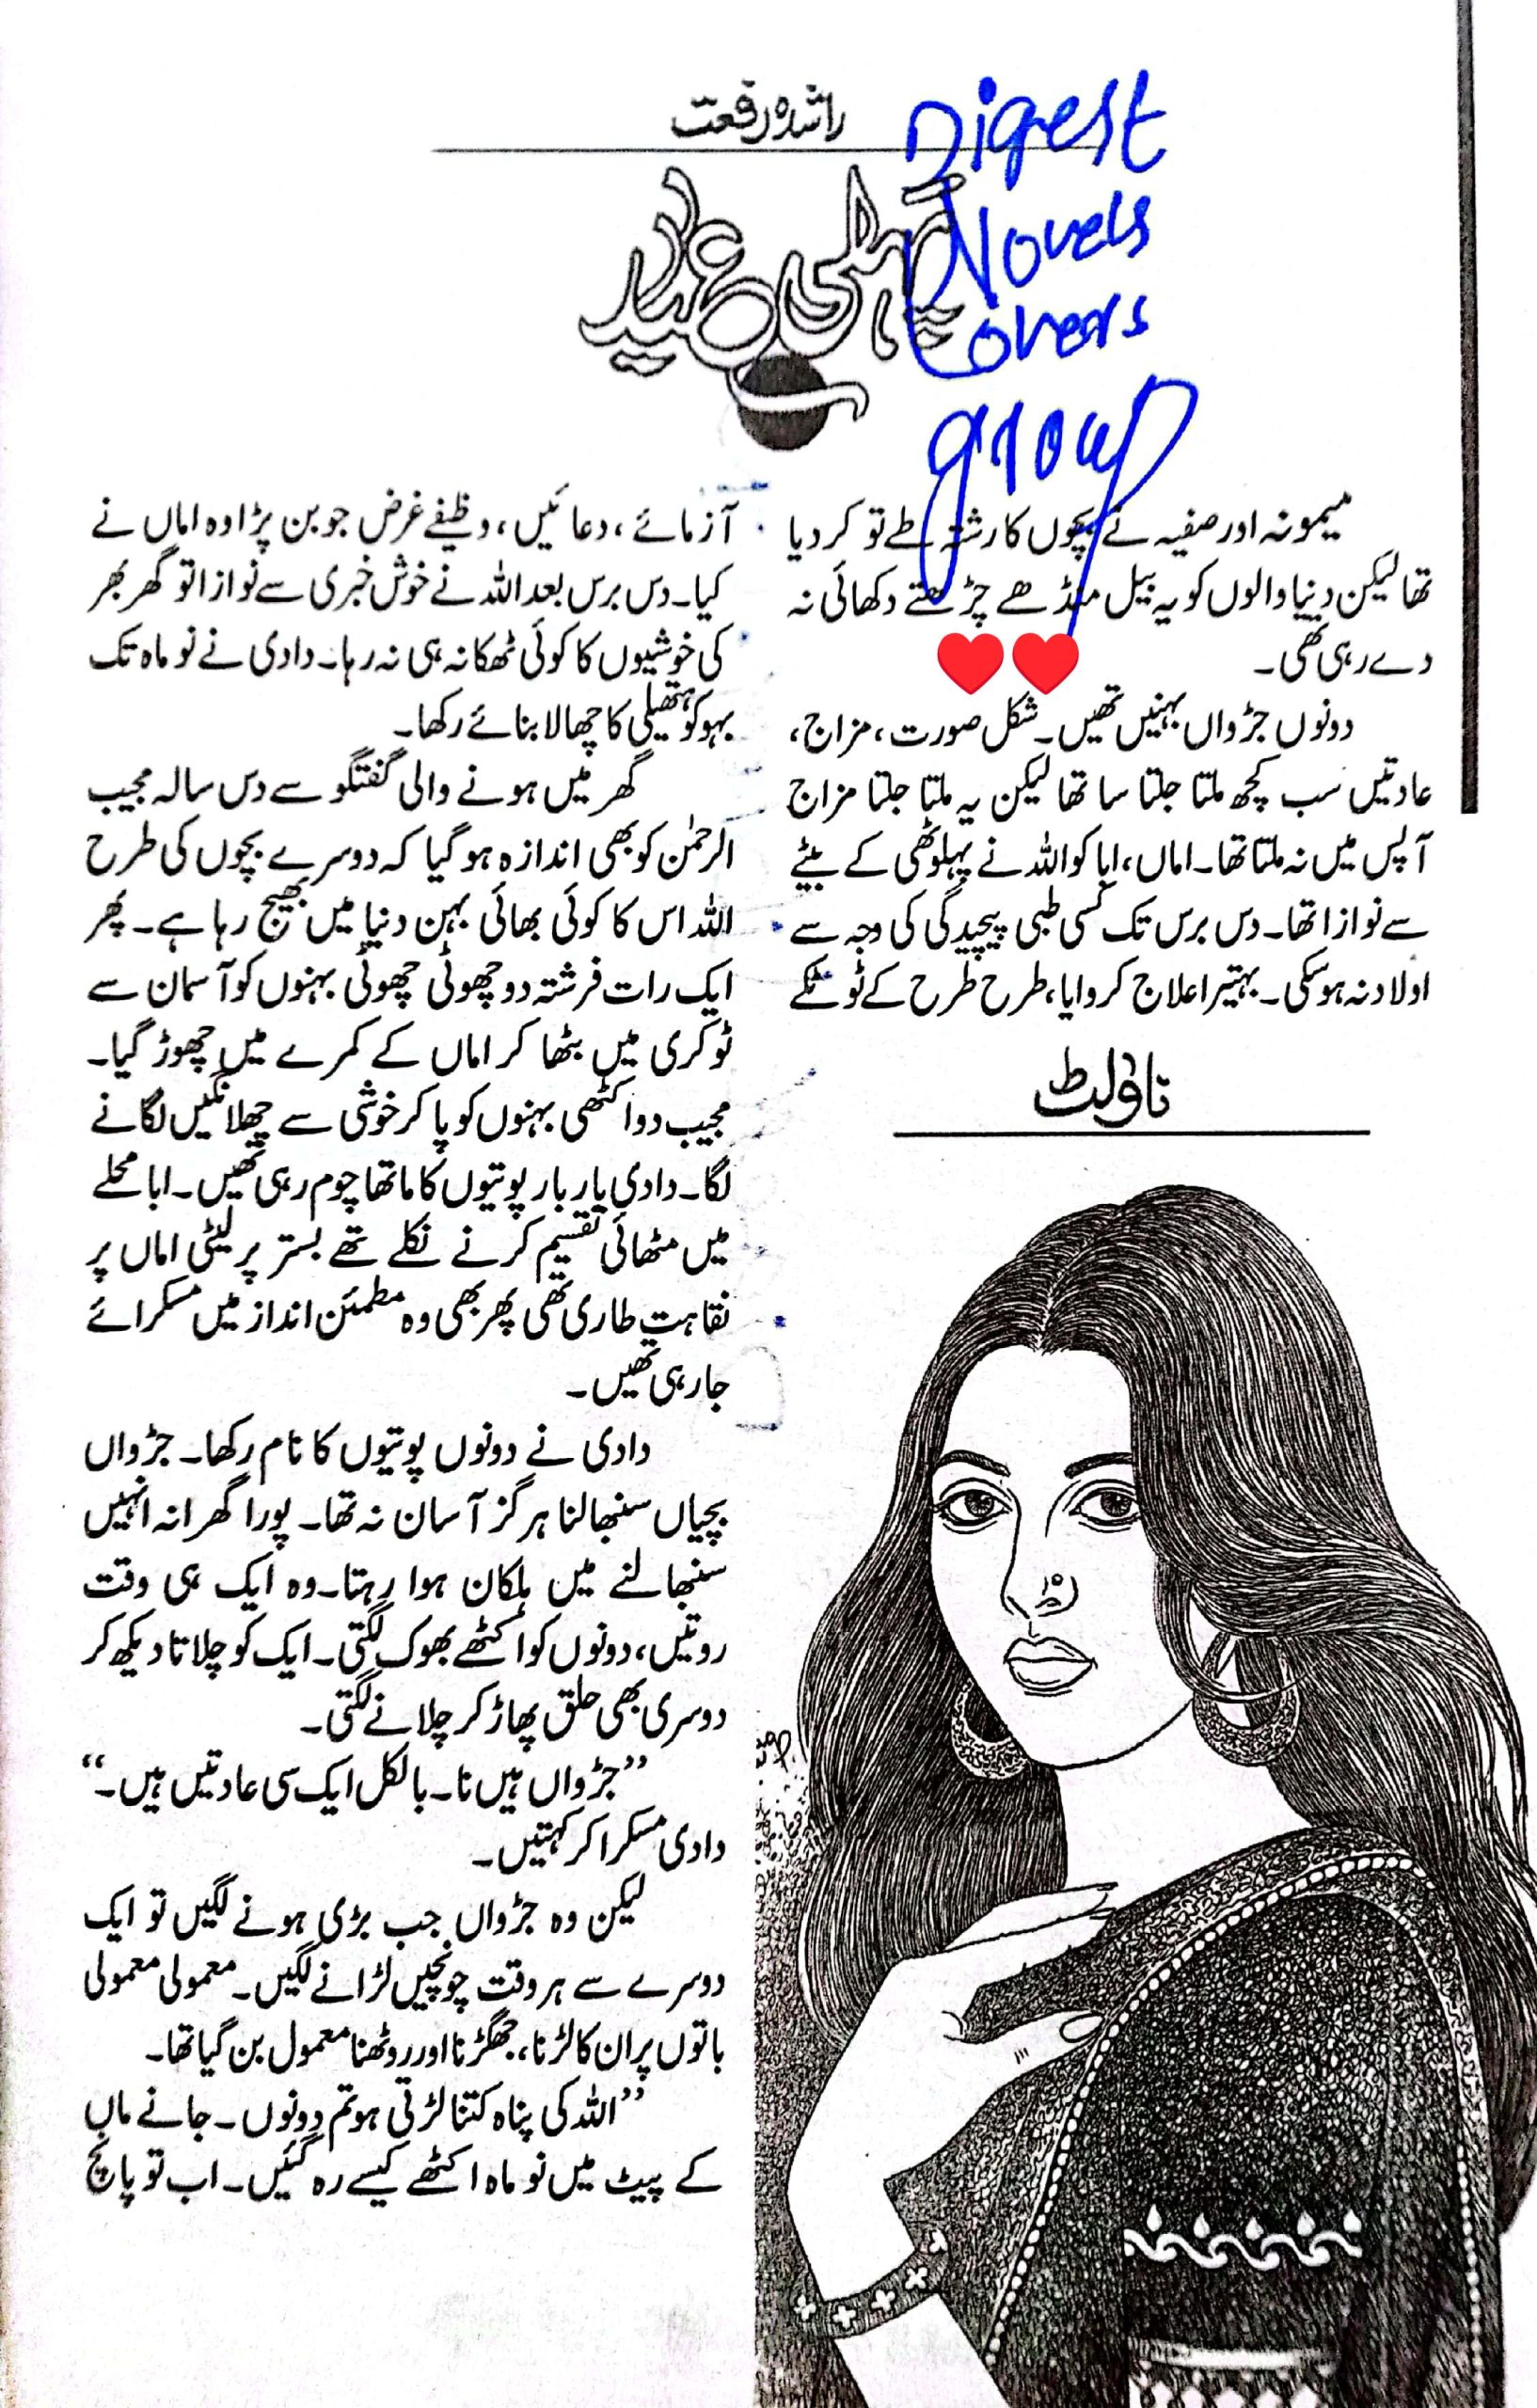 راشدہ رفعت
پہلی عید
Digest
Novels
Lovers
group
میمونہ اور صفیہ نے بچوں کا رشتہ طے تو کر دیا
تھا لیکن دنیا والوں کو یہ بیل منڈھے چڑھتے دکھائی نہ
دے رہی تھی۔
دونوں جڑواں بہنیں تھیں۔ شکل صورت، مزاج،
عادتیں سب کچھ ملتا جلتا سا تھا لیکن یہ ملتا جلتا مزاج
آپس میں نہ ملتا تھا۔ اماں، ابا کو اللہ نے پہلوٹھی کے بیٹے
سے نوازا تھا۔ دس برس تک کسی طبی پیچیدگی کی وجہ سے
اولاد نہ ہو سکی۔ بہتیرا علاج کروایا، طرح طرح کے ٹوٹکے
ناولٹ
آزمائے، دعائیں، وظیفے غرض جو بن پڑا وہ اماں نے
کیا۔ دس برس بعد اللہ نے خوش خبری سے نوازا تو گھر بھر
کی خوشیوں کا کوئی ٹھکانہ ہی نہ رہا۔ دادی نے نو ماہ تک
بہو کو ہتھیلی کا چھالا بنائے رکھا۔
گھر میں ہونے والی گفتگو سے دس سالہ مجیب
الرحمٰن کو بھی اندازہ ہو گیا کہ دوسرے بچوں کی طرح
اللہ اس کا کوئی بھائی بہن دنیا میں بھیج رہا ہے۔ پھر
ایک رات فرشتہ دو چھوٹی چھوٹی بہنوں کو آسمان سے
ٹوکری میں بٹھا کر اماں کے کمرے میں چھوڑ گیا۔
مجیب دو اکٹھی بہنوں کو پا کر خوشی سے چھلانگیں لگانے
لگا۔ دادی بار بار پوتیوں کا ماتھا چوم رہی تھیں۔ ابا محلے
میں مٹھائی تقسیم کرنے نکلے تھے بستر پر لیٹی اماں پر
نقاہت طاری تھی پھر بھی وہ مطمئن انداز میں مسکرائے
جا رہی تھیں۔
دادی نے دونوں پوتیوں کا نام رکھا۔ جڑواں
بچیاں سنبھالنا ہرگز آسان نہ تھا۔ پورا گھرانہ انہیں
سنبھالنے میں ہلکان ہوا رہتا۔ وہ ایک ہی وقت
روتیں، دونوں کو اکٹھے بھوک لگتی۔ ایک کو چلاتا دیکھ کر
دوسری بھی حلق پھاڑ کر چلانے لگتی۔
”جڑواں ہیں نا۔ بالکل ایک سی عادتیں ہیں۔“
دادی مسکرا کر کہتیں۔
لیکن وہ جڑواں جب بڑی ہونے لگیں تو ایک
دوسرے سے ہر وقت چونچیں لڑانے لگیں۔ معمولی معمولی
باتوں پر ان کا لڑنا، جھگڑنا اور روٹھنا معمول بن گیا تھا۔
”اللہ کی پناہ کتنا لڑتی ہو تم دونوں۔ جانے ماں
کے پیٹ میں نو ماہ اکٹھے کیسے رہ گئیں۔ اب تو پانچ